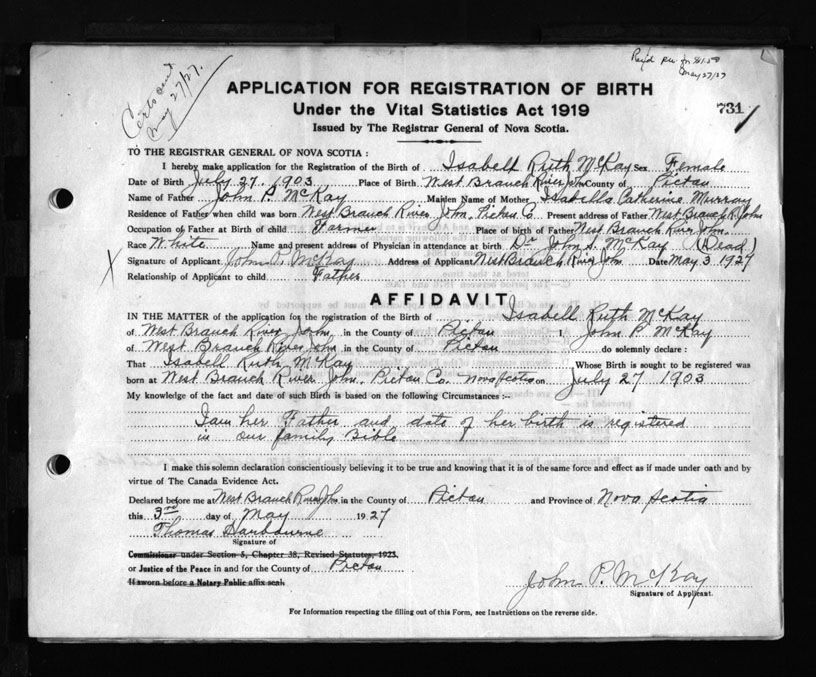 Certs sent May 27/27.
Rec'd per fn $1.50
May 27/27
APPLICATION FOR REGISTRATION OF BIRTH
Under the Vital Statistics Act 1919
731
Issued by The Registrar General of Nova Scotia.
TO THE REGISTRAR GENERAL OF NOVA SCOTIA :
I hereby make application for the Registration of the Birth of Isabell Ruth McKay Sex Female
Date of Birth July 27, 1903 Place of Birth West Branch River John County of Pictou
Name of Father John P. McKay Maiden Name of Mother Isabella Catherine Murray
Residence of Father when child was born West Branch River John, Pictou Co Present address of Father West Branch R. John
Occupation of Father at Birth of child Farmer Place of birth of Father West Branch River John.
Race White Name and present address of Physician in attendance at birth Dr John A. McKay (Dead)
X Signature of Applicant John P. McKay Address of Applicant West Branch River John Date May 3 1927
Relationship of Applicant to child Father
AFFIDAVIT
IN THE MATTER of the application for the registration of the Birth of Isabell Ruth McKay
of West Branch River John in the County of Pictou I John P. McKay
of West Branch River John in the County of Pictou do solemnly declare :
That Isabell Ruth McKay Whose Birth is sought to be registered was
born at West Branch River John. Pictou Co. Nova Scotia on July 27 1903
My knowledge of the fact and date of such Birth is based on the following Circumstances :-
I am her Father and date of her birth is registered
in our family Bible
I make this solemn declaration conscientiously believing it to be true and knowing that it is of the same force and effect as if made under oath and by
virtue of The Canada Evidence Act.
Declared before me at West Branch River John in the County of Pictou and Province of Nova Scotia
this 3rd day of May 1927
Thomas
Signature of
Commissioner under Section 5, Chapter 38, Revised Statutes, 1923.
or Justice of the Peace in and for the County of Pictou
If sworn before a Notary Public affix seal.
John P. McKay
Signature of Applicant.
For Information respecting the filling out of this Form, see Instructions on the reverse side.